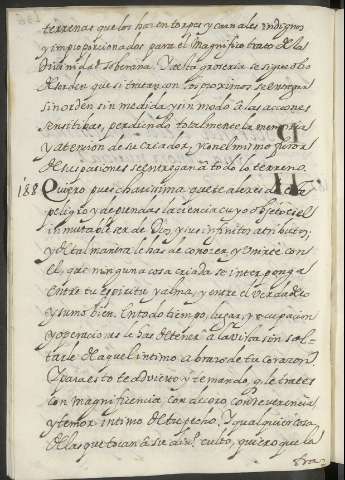 terrenas que los hazen torpes y carnales indignos
y improporcionados para el magnifico trato de la
Diuinidad soberana. Y a esta groseria se sigue otro
desorden que si tratan con los proximos se entregan
sin orden sin medida y sin modo a las acciones
sensitibas, perdiendo totalmente la memoria
y atencion de su criador, y con el mismo furor
de sus pasiones se entregan a todo lo terreno.
188 Quiero pues charissima que te alexes de este
peligro y deprendas la ciencia cuyo objeto es el
inmutable ser de Dios, y sus infinitos atributos;
y de tal manera le has de conozer, y unirte con
el, que ninguna cosa criada se interponga
entre tu espiritu y alma, y entre el verdadero
y sumo bien. En todo tiempo, lugar, y ocupacion
y operaciones le has de tener a la vista sin sol-
tarle de aquel intimo abrazo de tu corazon.
Y para esto te aduierto y te mando, q le trates
con magnificencia, con decoro, con reuerencia
y temor intimo de tu pecho. Y qualquiera cosa
de las que tocan a su diuº culto, quiero que la